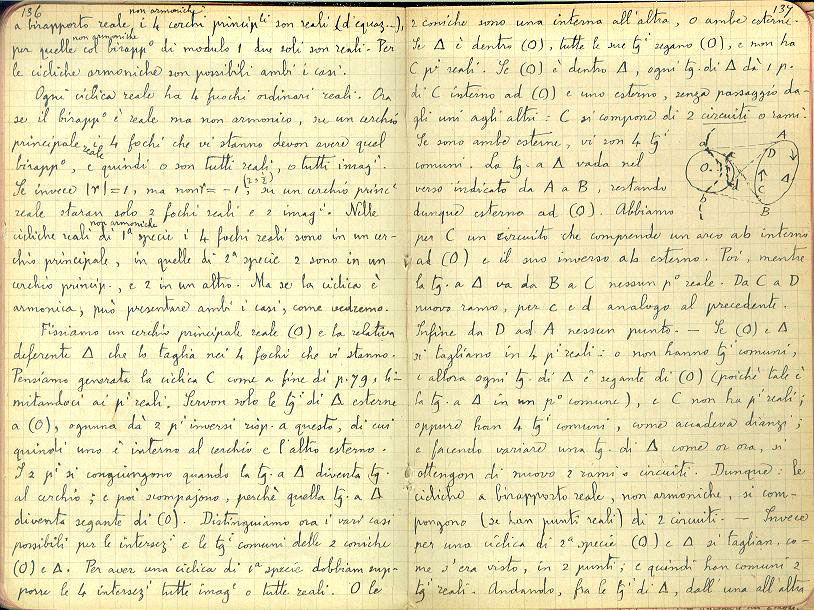 136
non armoniche
a birapporto reale, i 4 cerchi princip^li son reali (d'equaz...),
non armoniche
per quelle col birapp^o di modulo 1 due soli son reali. Per
le cicliche armoniche son possibili ambi i casi.
Ogni ciclica reale ha 4 fuochi ordinari reali. Ora
se il birapp^o è reale ma non armonico, su un cerchio
principale i 4 fochi che vi stanno devon avere quel
reale
birapp^o, e quindi o son tutti reali, o tutti imag^i.
Se invece |r|=1, ma non r=-1, su un cerchio princ^e
reale staran solo 2 fochi reali e 2 imag^i. Nelle
non armoniche
cicliche reali di 1ª specie i 4 fochi reali sono in un cer-
chio principale, in quelle di 2ª specie 2 sono in un
cerchio princip., e 2 in un altro. Ma se la ciclica è
armonica, può presentare ambi i casi, come vedremo.
Fissiamo un cerchio principale reale (O) e la relativa
deferente Δ che lo taglia nei 4 fochi che vi stanno.
Pensiamo generata la ciclica C come a fine di p. 79, li-
mitandoci ai p^i reali. Servon solo le tg^i di Δ esterne
a (O), ognuna dà 2 p^i inversi risp. a questo, di cui
quindi uno è interno al cerchio e l'altro esterno.
I 2 p^i si congiungono quando la tg. a Δ diventa tg.
al cerchio; e poi scompajono, perchè quella tg. a Δ
diventa segante di (O). Distinguiamo ora i vari casi
possibili per le intersez^i e le tg^i comuni delle 2 coniche
(O) e Δ. Per aver una ciclica di 1ª specie dobbiam sup-
porre le 4 intersez^i tutte imag^i o tutte reali. O le
137
2 coniche sono una interna all'altra, o ambe esterne.
Se Δ è dentro (O), tutte le sue tg^i segano (O), e non ha
C p^i reali. Se (O) è dentro Δ, ogni tg. di Δ dà 1 p.
di C interno ad (O) e uno esterno, senza passaggio da-
gli uni agli altri: C si compone di 2 circuiti o rami.
Se sono ambe esterne, vi son 4 tg^i
comuni. La tg. a Δ vada nel
verso indicato da A a B, restando
dunque esterna ad (O). Abbiamo
a d A D O. c C Δ b B
per C un circuito che comprende un arco ab interno
ad (O) e il suo inverso ab esterno. Poi, mentre
la tg. a Δ va da B a C nessun p^o reale. Da C a D
nuovo ramo, per c e d analogo al precedente.
Infine da D ad A nessun punto. — Se (O) e Δ
si tagliano in 4 p^i reali: o non hanno tg^i comuni,
e allora ogni tg. di Δ è segante di (O) (poichè tale è
la tg. a Δ in un p^o comune), e C non ha p^i reali;
oppure han 4 tg^i comuni, come accadeva dianzi;
e facendo variare una tg. di Δ come or ora, si
ottengon di nuovo 2 rami o circuiti. Dunque: le
cicliche a birapporto reale, non armoniche, si com-
pongono (se han punti reali) di 2 circuiti. — Invece
per una ciclica di 2ª specie (O) e Δ si taglian, co-
me s'era visto, in 2 punti; e quindi han comuni 2
tg^i reali. Andando, fra le tg^i di Δ, dall'una all'altra